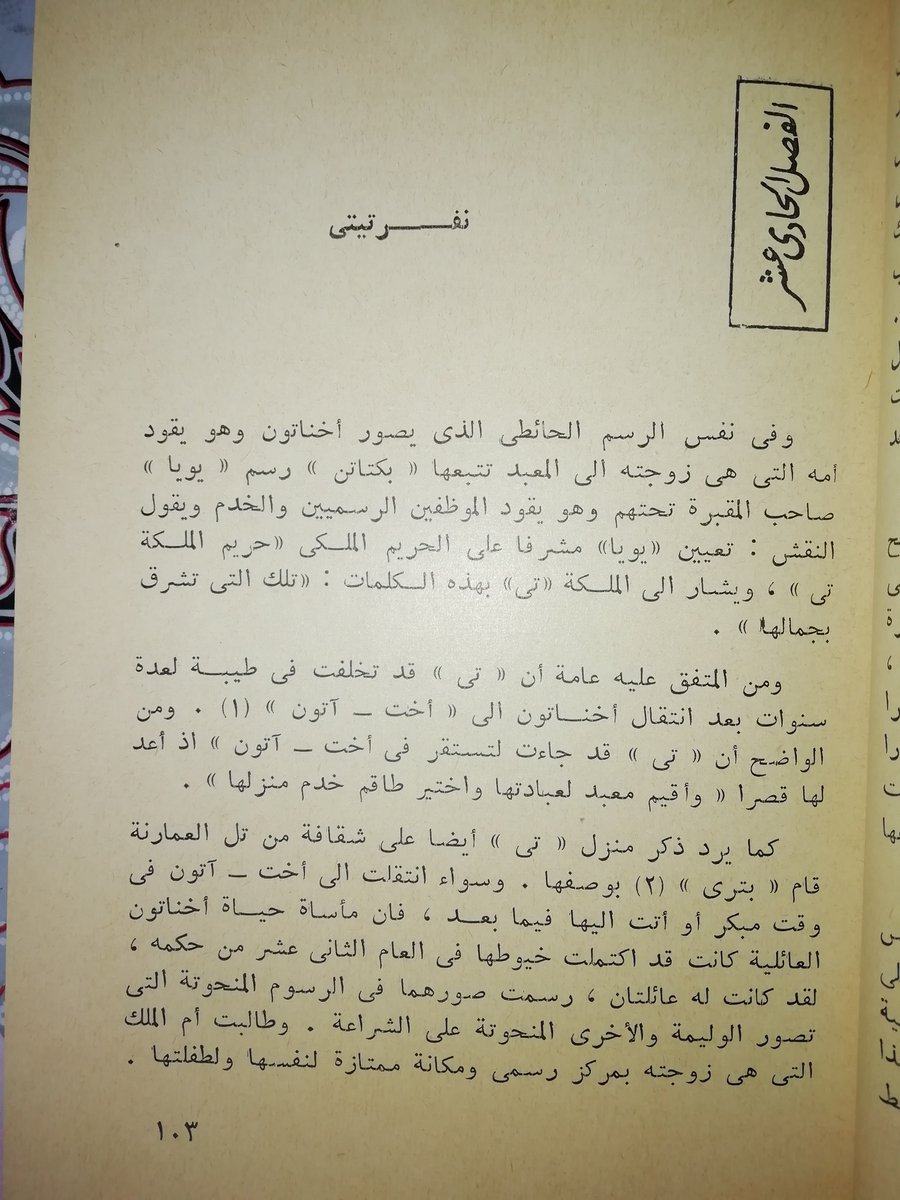 الفصل الحادى عشر
نفــــرتيتى
وفى نفس الرسم الحائطى الذى يصور أخناتون وهو يقود
أمه التى هى زوجته الى المعبد تتبعها « بكتاتن » رسم « يويا »
صاحب المقبرة تحتهم وهو يقود الموظفين الرسميين والخدم ويقول
النقش : تعيين «يويا» مشرفا على الحريم الملكى «حريم الملكة
تى » ، ويشار الى الملكة «تى» بهذه الكلمات : «تلك التى تشرق
بجمالها » .
ومن المتفق عليه عامة أن « تى » قد تخلفت فى طيبة لعدة
سنوات بعد انتقال أخناتون الى « أخت ــ آتون » (١) . ومن
الواضح أن « تى » قد جاءت لتستقر فى أخت ــ آتون » اذ أعد
لها قصرا « وأقيم معبد لعبادتها واختير طاقم خدم منزلها » .
كما يرد ذكر منزل « تى » أيضا على شقافة من تل العمارنة
قام « بترى » (٢) بوصفها . وسواء انتقلت الى أخت ــ آتون فى
وقت مبكر أو أتت اليها فيما بعد ، فان مأساة حياة أخناتون
العائلية كانت قد اكتملت خيوطها فى العام الثانى عشر من حكمه ،
لقد كانت له عائلتان ، رسمت صورهما فى الرسوم المنحوتة التى
تصور الوليمة والأخرى المنحوتة على الشراعة . وطالبت أم الملك
التى هى زوجته بمركز رسمى ومكانة ممتازة لنفسها ولطفلتها .
١٠٣